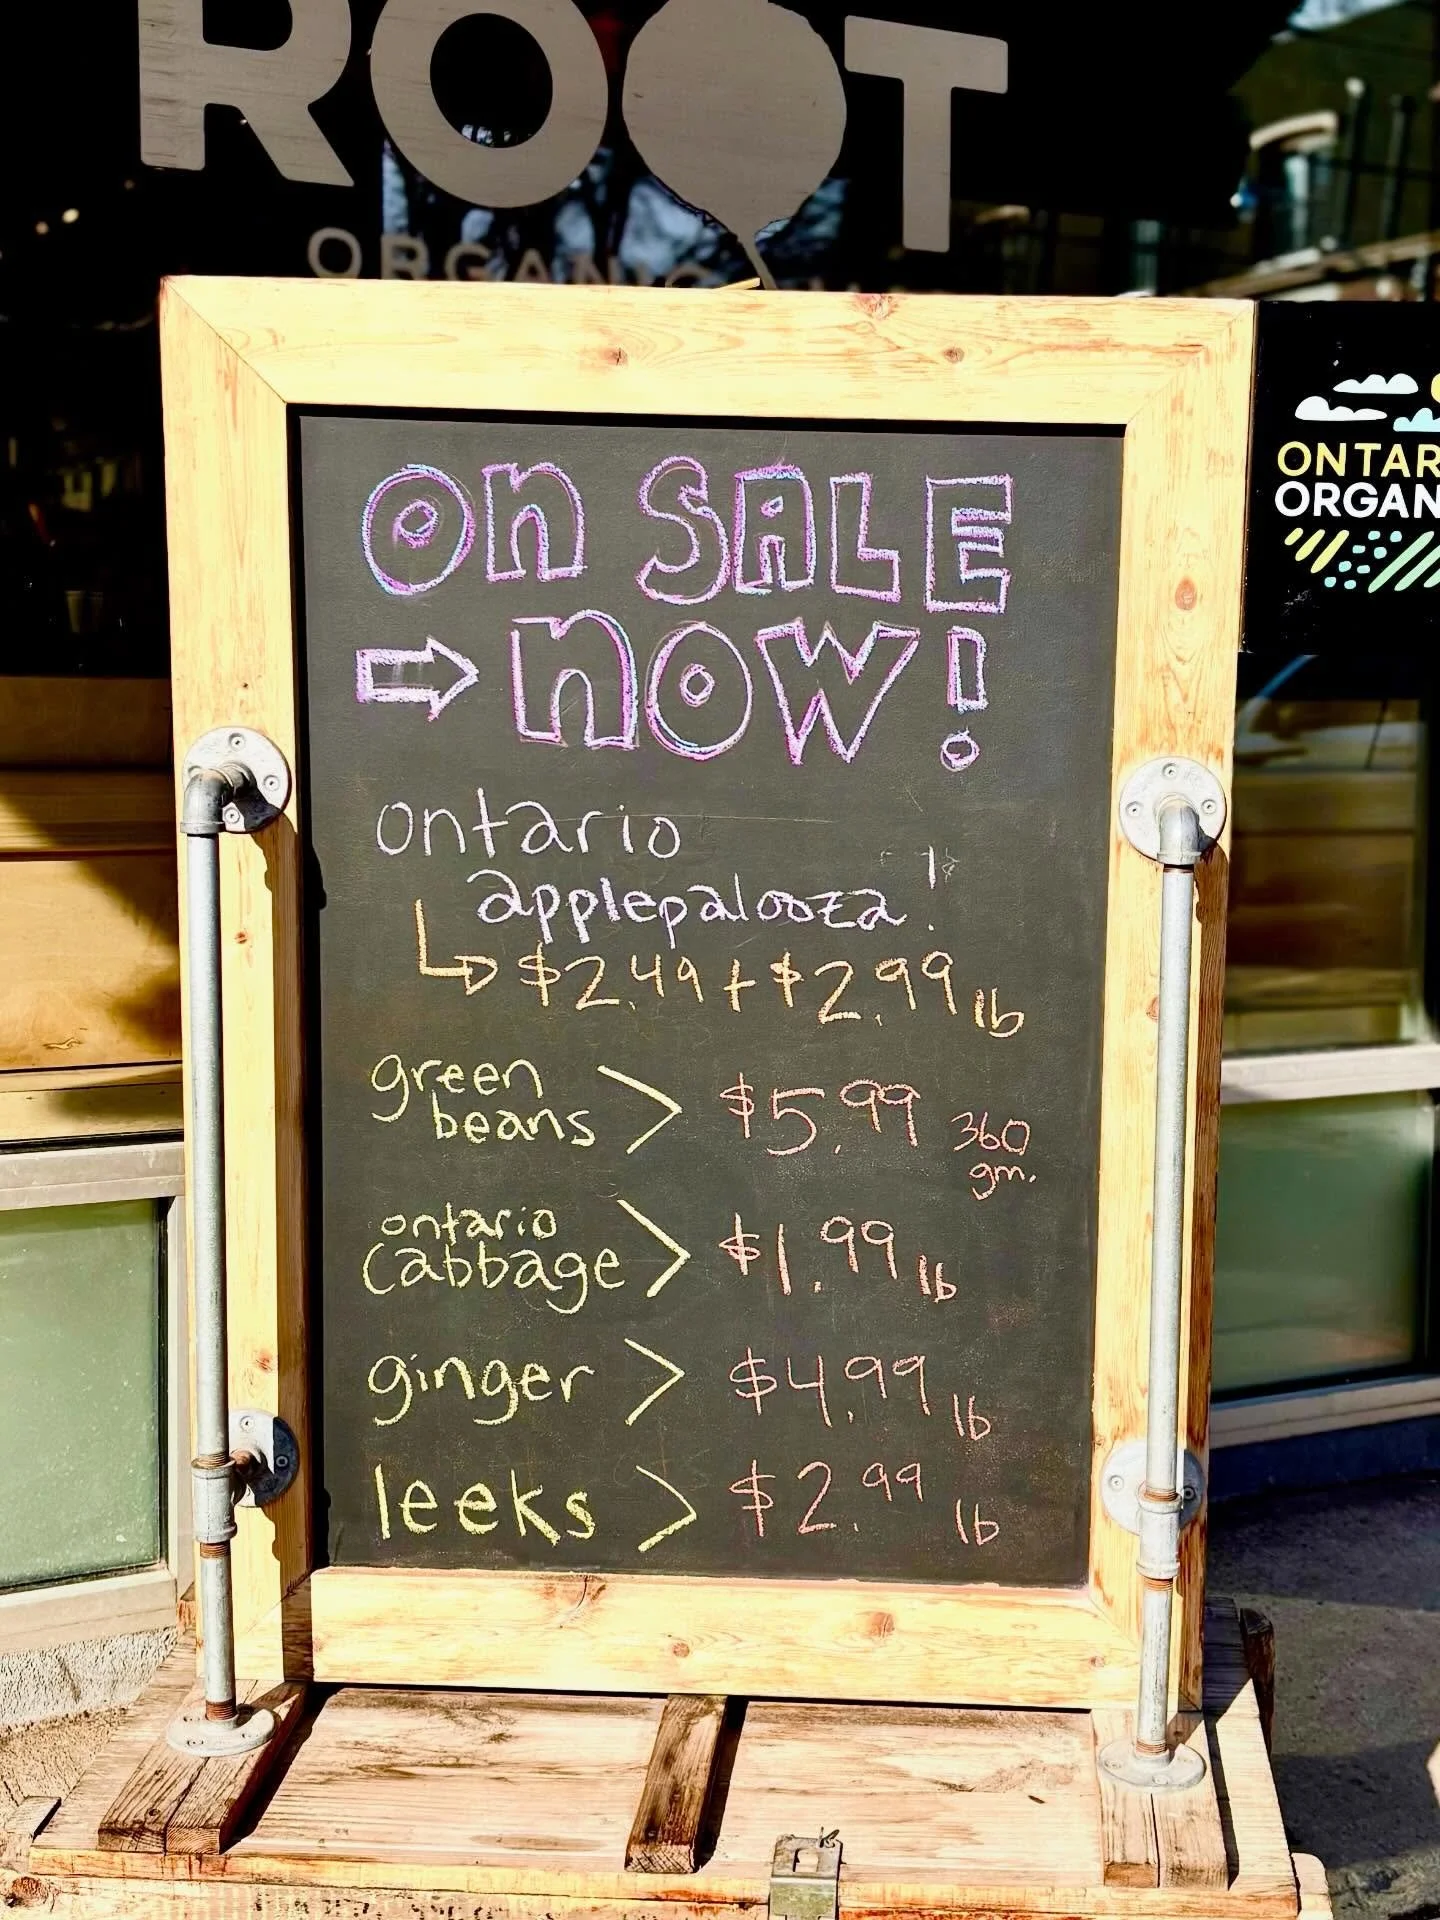 ROOT
ORGANIC
ONTAR
ORGAN
on SALE
now!
ontario
applepalooza!
$2.49 + $2.99 lb
green
beans > $5.99 360
gm.
ontario
cabbage > $1.99 lb
ginger > $4.99 lb
leeks > $2.99 lb